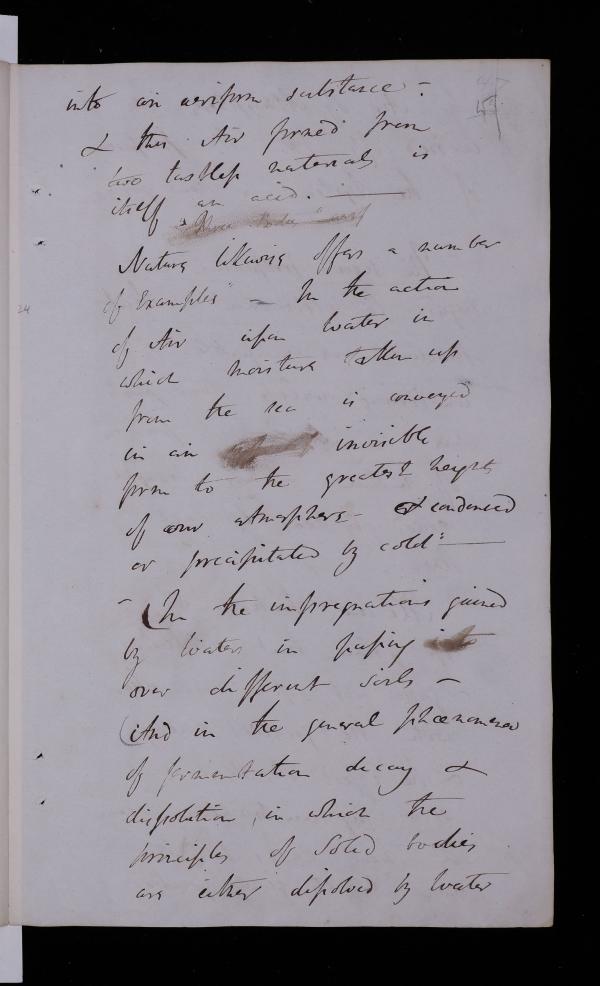 into an aeriform substance -
& this Air formed from
two tastless materials is
itself an acid. —
Nature likewise offers a number
of Examples - In the action
of Air upon Water in
which moisture taken up
from the sea is conveyed
in an invisible
form to the greatest heights
of our atmosphere - & condensed
or precipitated by cold: —
- (In the impregnations gained
by Waters in passing into
over different soils -
(And in the general phœnomena
of fermentation decay &
dissolution, in which the
principles of Solid bodies
are either dissolved by Water
24